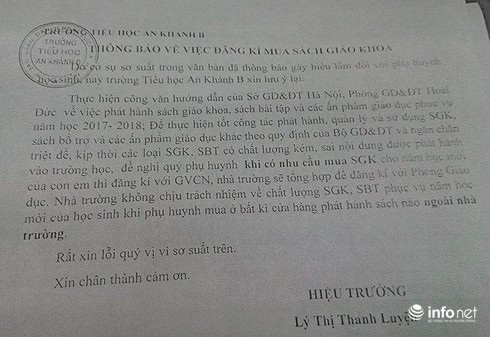 TRƯỜNG TIỂU HỌC AN KHÁNH B
TRƯỜNG
TIỂU HỌC
AN KHÁNH B
THÔNG BÁO VỀ VIỆC ĐĂNG KÍ MUA SÁCH GIÁO KHOA
Do có sự sơ suất trong văn bản đã thông báo gây hiểu lầm đối với phụ huynh
học sinh, nay trường Tiểu học An Khánh B xin lưu ý lại:
Thực hiện công văn hướng dẫn của Sở GD&ĐT Hà Nội, Phòng GD&ĐT Hoài
Đức về việc phát hành sách giáo khoa, sách bài tập và các ấn phẩm giáo dục phục vụ
năm học 2017- 2018; Để thực hiện tốt công tác phát hành, quản lý và sử dụng SGK,
sách bổ trợ và các ấn phẩm giáo dục khác theo quy định của Bộ GD&ĐT và ngăn chặn
triệt để, kịp thời các loại SGK, SBT có chất lượng kém, sai nội dung được phát hành
vào trường học, đề nghị quý phụ huynh khi có nhu cầu mua SGK cho năm học mới
của con em thì đăng kí với GVCN, nhà trường sẽ tổng hợp để đăng kí với Phòng Giáo
dục. Nhà trường không chịu trách nhiệm về chất lượng SGK, SBT phục vụ năm học
mới của học sinh khi phụ huynh mua ở bất kì cửa hàng phát hành sách nào ngoài nhà
trường.
Rất xin lỗi quý vị vì sơ suất trên.
Xin chân thành cảm ơn.
HIỆU TRƯỞNG
Lý Thị Thanh Luyện
infonet